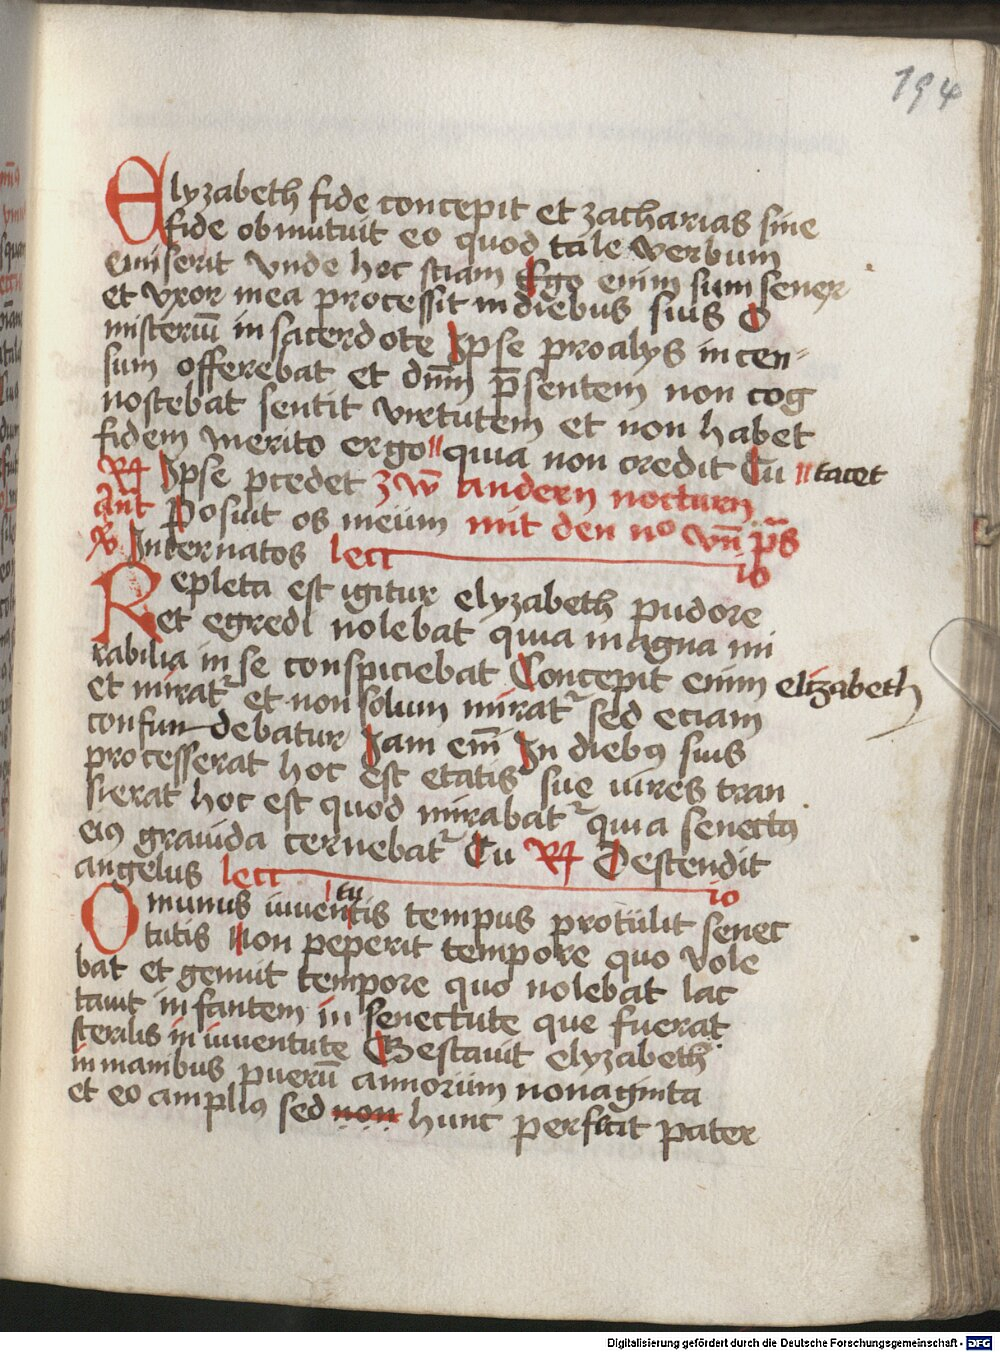 194
Elyzabeth fide concepit et zacharias sine
fide obmutuit eo quod tale werbum
emiserit vnde hoc sciam Ego enim sum senex
et vxor mea processit in diebus suis O
misteriū in sacerdote Ipse pro alys incen
sum offerebat et dnm̄ p̄sentem non cog
noscebat sentit virtutem et non habet
fidem merito ergo quia non credit Tu tacet
Ipse pcedet zw̄ andern nocturn
Ant̄ Posuit os meum mit den no vn̄ ps̄
Inter natos lect io
Repleta est igitur elyzabeth pudore
et egredi nolebat quia magna mi
rabilia in se conspiciebat Concepit enim elizabeth
et mirat et non solum mirat sed eciam
confundebatur Iam em̄ In dieb9 suis
processerat hoc est etatis sue vires tran
sierat hoc est quod mirabat quia senectu9
ei9 grauida cernebat Tu Descendit
angelus lect io
O munus iuuentutis tempus protulit senec
tutis Non peperit tempore quo vole
bat et genuit tempore quo nolebat lac
tauit infantem in senectute que fuerat
sterilis in iuuentute Gestauit elyzabeth
in manibus puerū annorum nonaginta
et eo ampli9 sed non hunc perficit pater
Digitalisierung gefördert durch die Deutsche Forschungsgemeinschaft - DFG